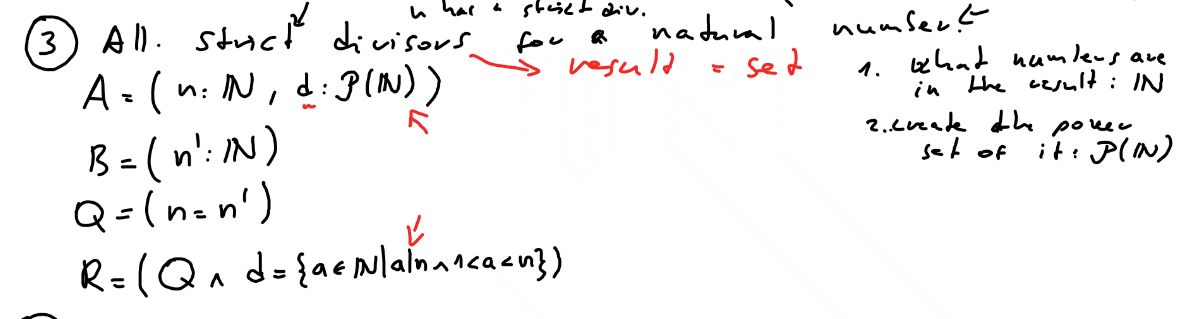 n has a strict div.
③ All. strict divisors for a natural number.
result = set
A = ( n: ℕ , d : 𝒫(ℕ) )
B = ( n' : ℕ )
Q = ( n = n' )
R = ( Q ∧ d = {a ∈ ℕ | a|n ∧ 1<a<n} )
1. What numbers are
in the result : ℕ
2. create the power
set of it : 𝒫(ℕ)